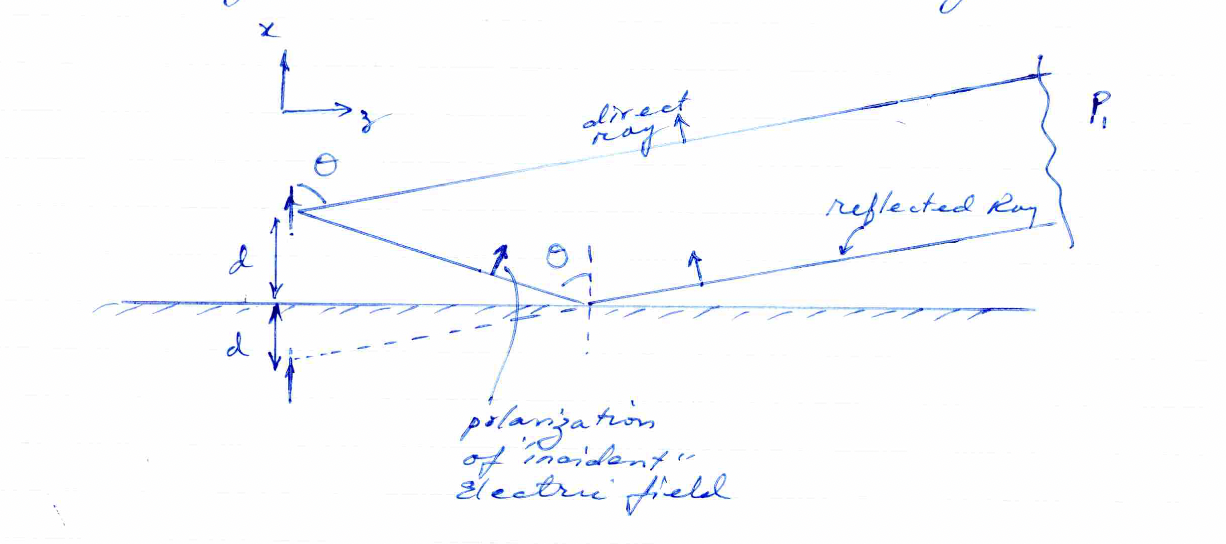 x
z
direct
ray
P₁
θ
reflected Ray
d
θ
d
polarization
of "incident"
Electric field